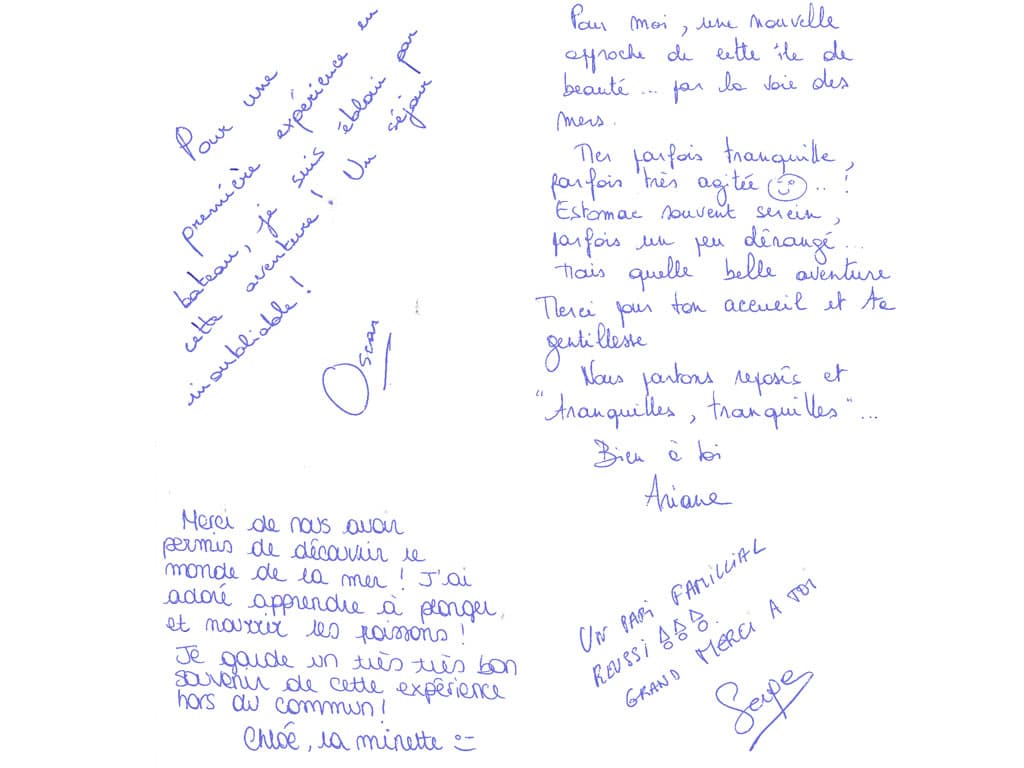 Pour une
première expérience en
bateau, je suis ébloui par
cette aventure! Un séjour
inoubliable!
Oscar
Pour moi, une nouvelle
approche de cette île de
beauté... par la voie des
mers.
Mer parfois tranquille,
parfois très agitée ☺..!
Estomac souvent serein,
parfois un peu dérangé...
Mais quelle belle aventure
Merci pour ton accueil et ta
gentillesse
Nous partons reposés et
"tranquilles, tranquilles"...
Bien à toi
Ariane
Merci de nous avoir
permis de découvrir le
monde de la mer! J'ai
adoré apprendre à plonger,
et nourrir les poissons!
Je garde un très très bon
souvenir de cette expérience
hors du commun!
Chloé, la minette =)
UN PARI FAMILIAL
REUSSI !!!
GRAND MERCI A TOI